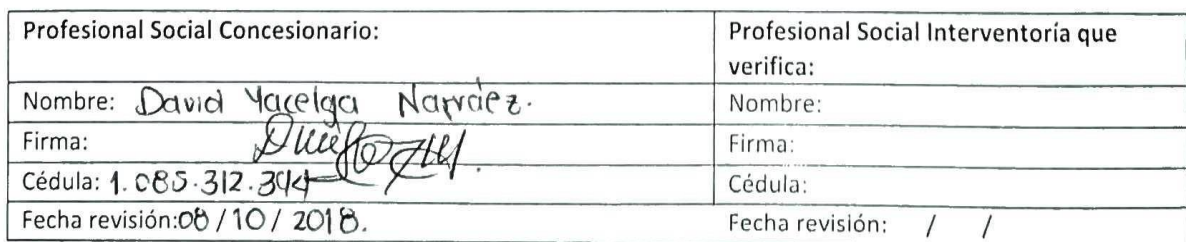 Profesional Social Concesionario:
Profesional Social Interventoría que
verifica:
Nombre: David Yacelga Narváez.
Nombre:
Firma:
Firma:
Cédula: 1.085.312.344
Cédula:
Fecha revisión:08 / 10 / 2018.
Fecha revisión: / /